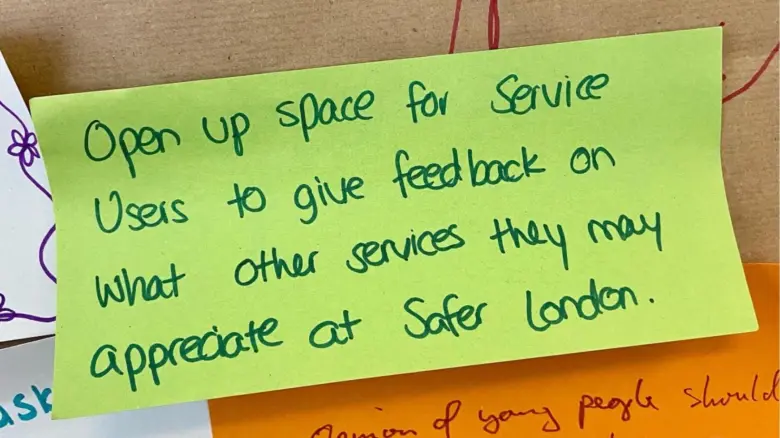 Open up space for Service
Users to give feedback on
what other services they may
appreciate at Safer London.
ask
opinion of young people should